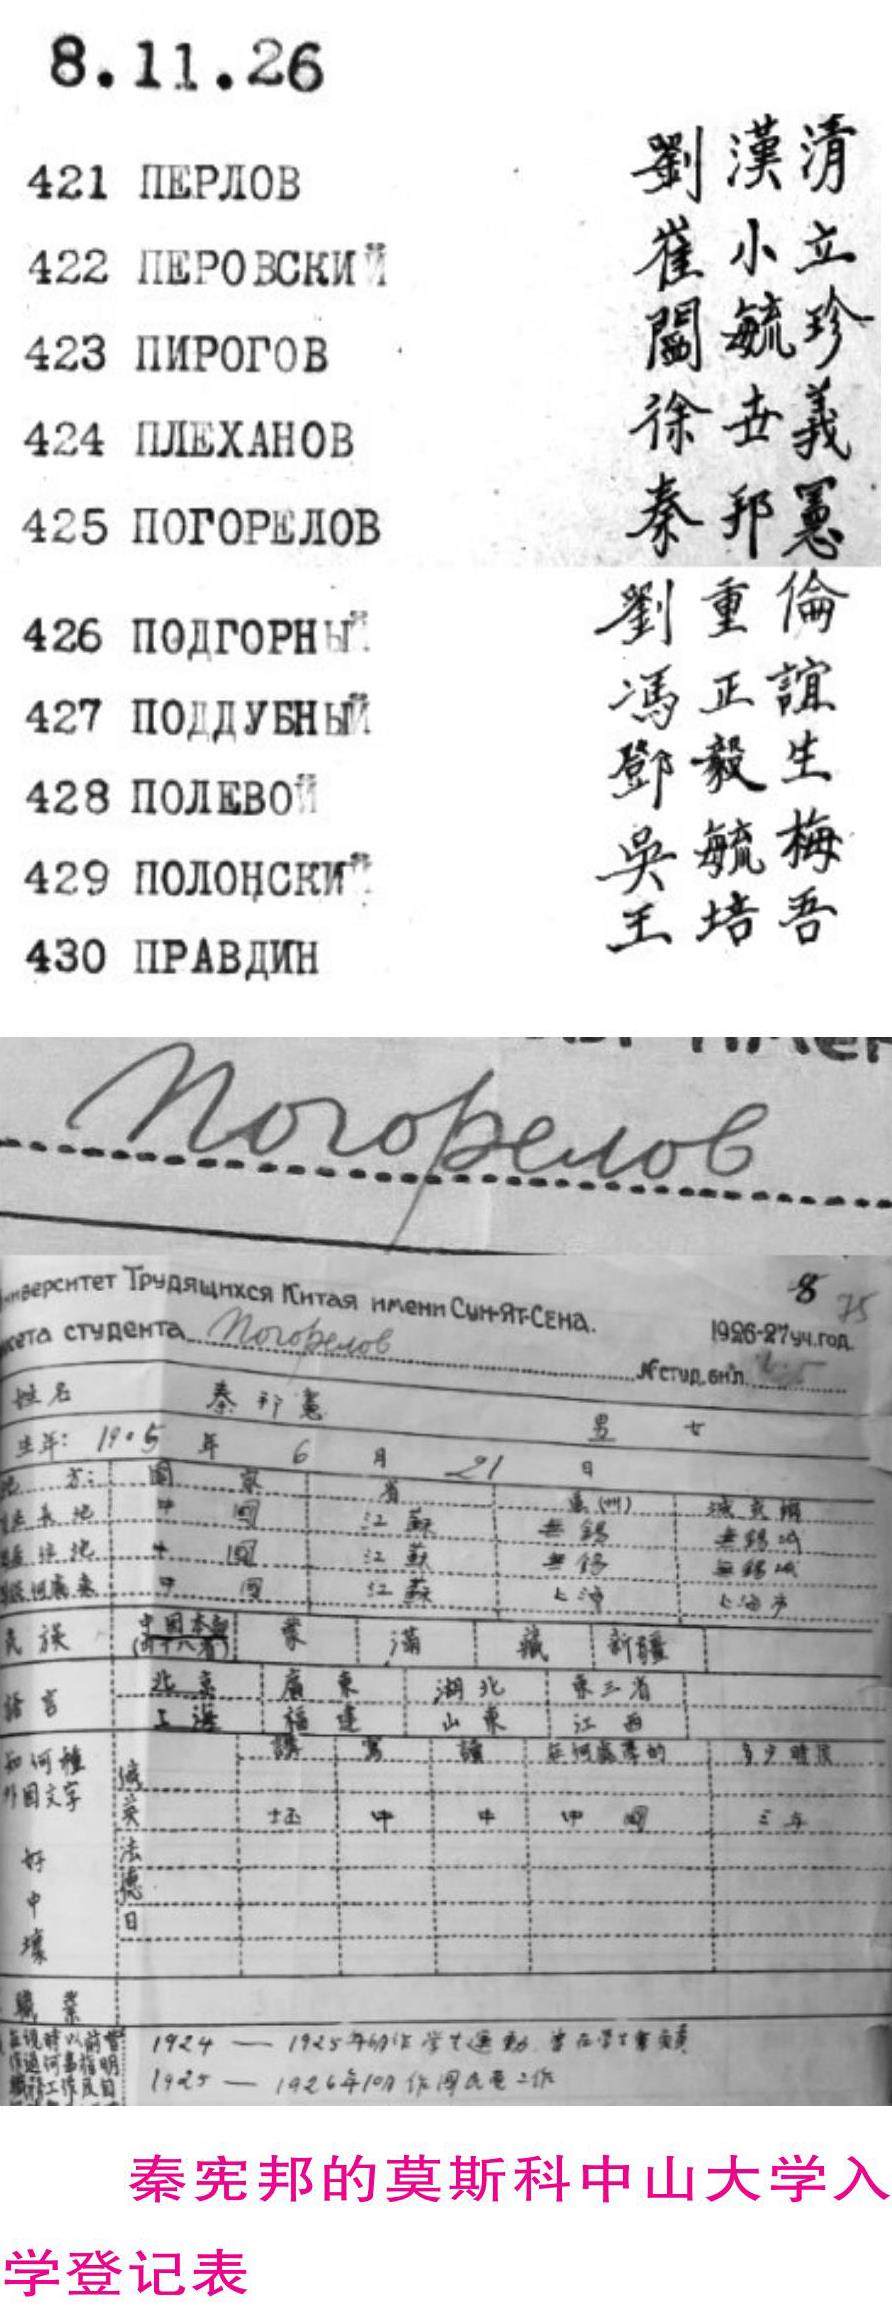 8.11.26
421 ПЕРЛОВ 劉漢清
422 ПЕРОВСКИЙ 崔小立
423 ПИРОГОВ 闞毓珍
424 ПЛЕХАНОВ 徐世義
425 ПОГОРЕЛОВ 秦邦憲
426 ПОДГОРНЫЙ 劉重倫
427 ПОДДУБНЫЙ 馮正誼
428 ПОЛЕВОЙ 鄧毅生
429 ПОЛОНСКИЙ 吳毓梅
430 ПРАВДИН 王培吾
Погорелов
ниверситет Трудящихся Китая имени Сун-Ят-Сена. 8 75
кета студента Погорелов 1926-27 уч. год
№ студ. бил.
姓名 秦邦憲 男 女
生年: 1905 年 6 月 21 日
地 方: 國 家 省 縣(州) 城或鄉
中 國 江蘇 無錫 無錫城
中 國 江蘇 無錫 無錫城
中 國 江蘇 上海 上海市
民族 中國本部 蒙 滿 藏 新疆
(前十八省)
語言 北京 廣東 湖北 東三省
上海 福建 山東 江西
知何種 講 寫 讀 在何處學的 多少時候
外國文字 俄
英 坏 中 中 中國 三年
好 法
中 德
壞 日
職業
1924 — 1925年6月作學生運動
1925 — 1926年10月作國民黨工作
秦宪邦的莫斯科中山大学入
学登记表